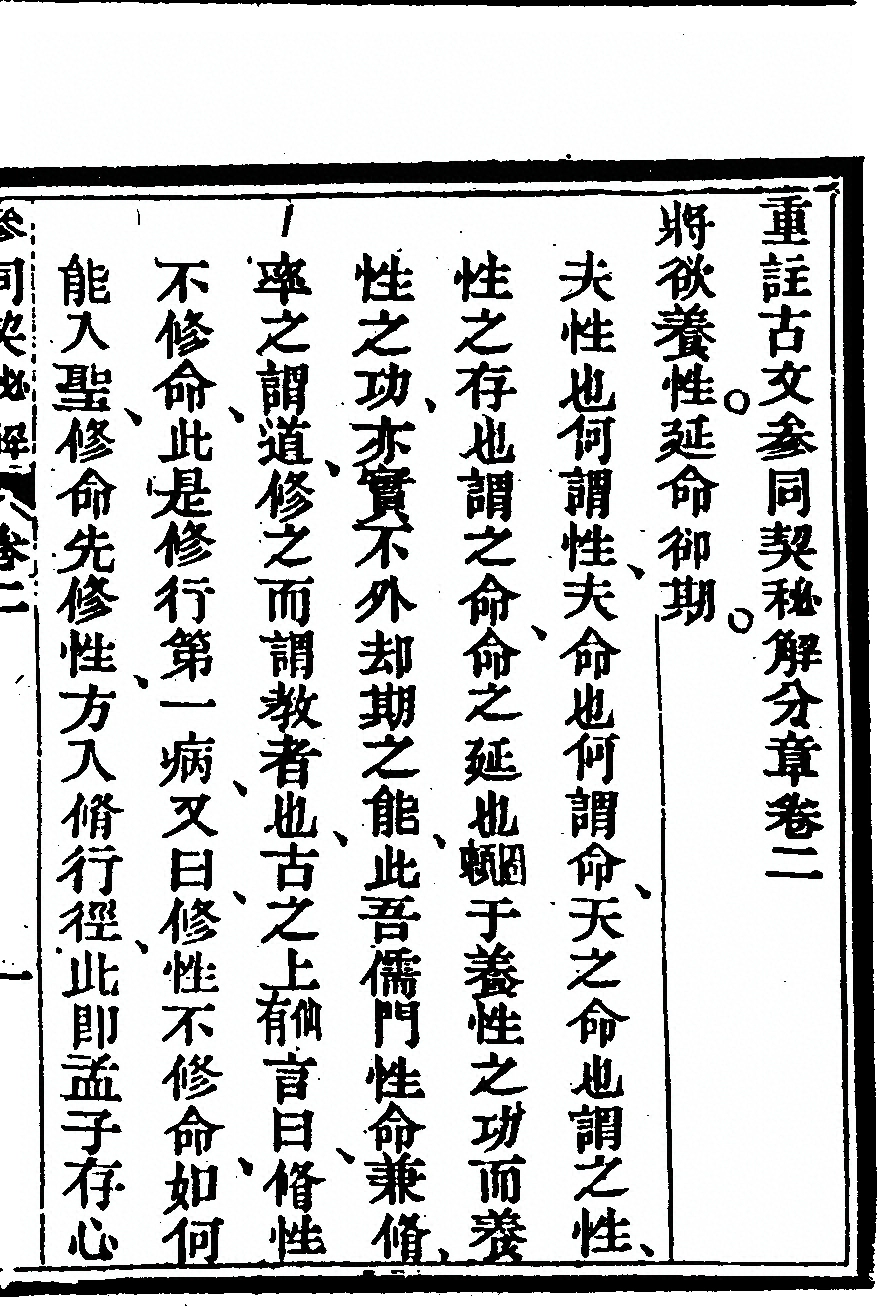 重註古文參同契秘解分章卷二
將欲養性延命卻期
夫性也何謂性夫命也何謂命天之命也謂之性
性之存也謂之命命之延也固賴于養性之功而養
性之功亦實不外却期之能此吾儒門性命兼脩
率之謂道修之而謂教者也古之上仙有言曰脩性
不修命此是修行第一病又曰修性不修命如何
能入聖修命先修性方入脩行徑此即孟子存心
參同契秘解 卷二 一